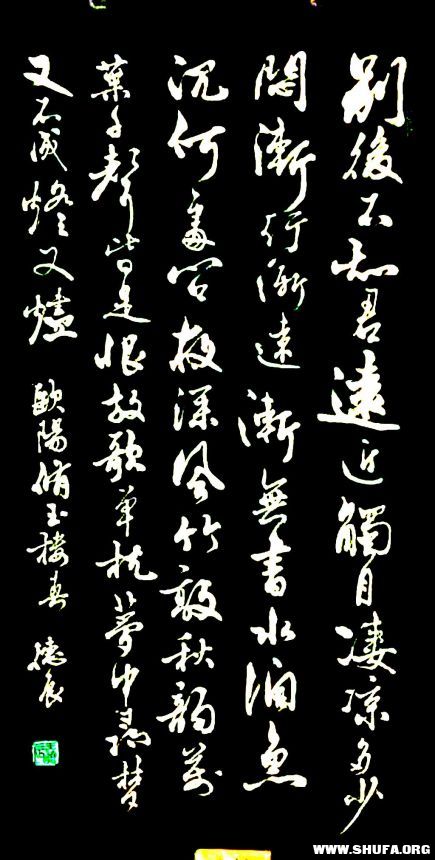 別後不知君遠近觸目凄涼多少
悶漸行漸遠漸無書水濶魚
沉何處問夜深風竹敲秋韻萬
葉千聲皆是恨故欹单枕夢中尋梦
又不成燈又燼 歐陽脩玉樓春
WWW.SHUFA.ORG